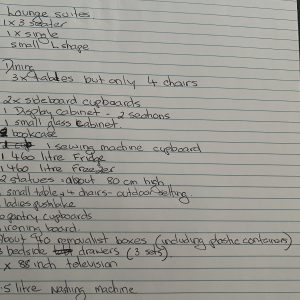 Lounge suites.
1x3 seater
1x single
small L shape
Dining
3x tables but only 4 chairs
2x sideboard cupboards
1 Display cabinet - 2 sections
1 small glass cabinet.
bookcase
1 sewing machine cupboard
1 460 litre Fridge
1 460 litre Freezer
2 statues - about 80cm high
small table, 4 chairs - outdoor setting.
ladies pushbike
pantry cupboards
ironing board.
about 40 removalist boxes (including plastic containers)
bedside drawers (3 sets)
x 88 inch television
.5 litre washing machine